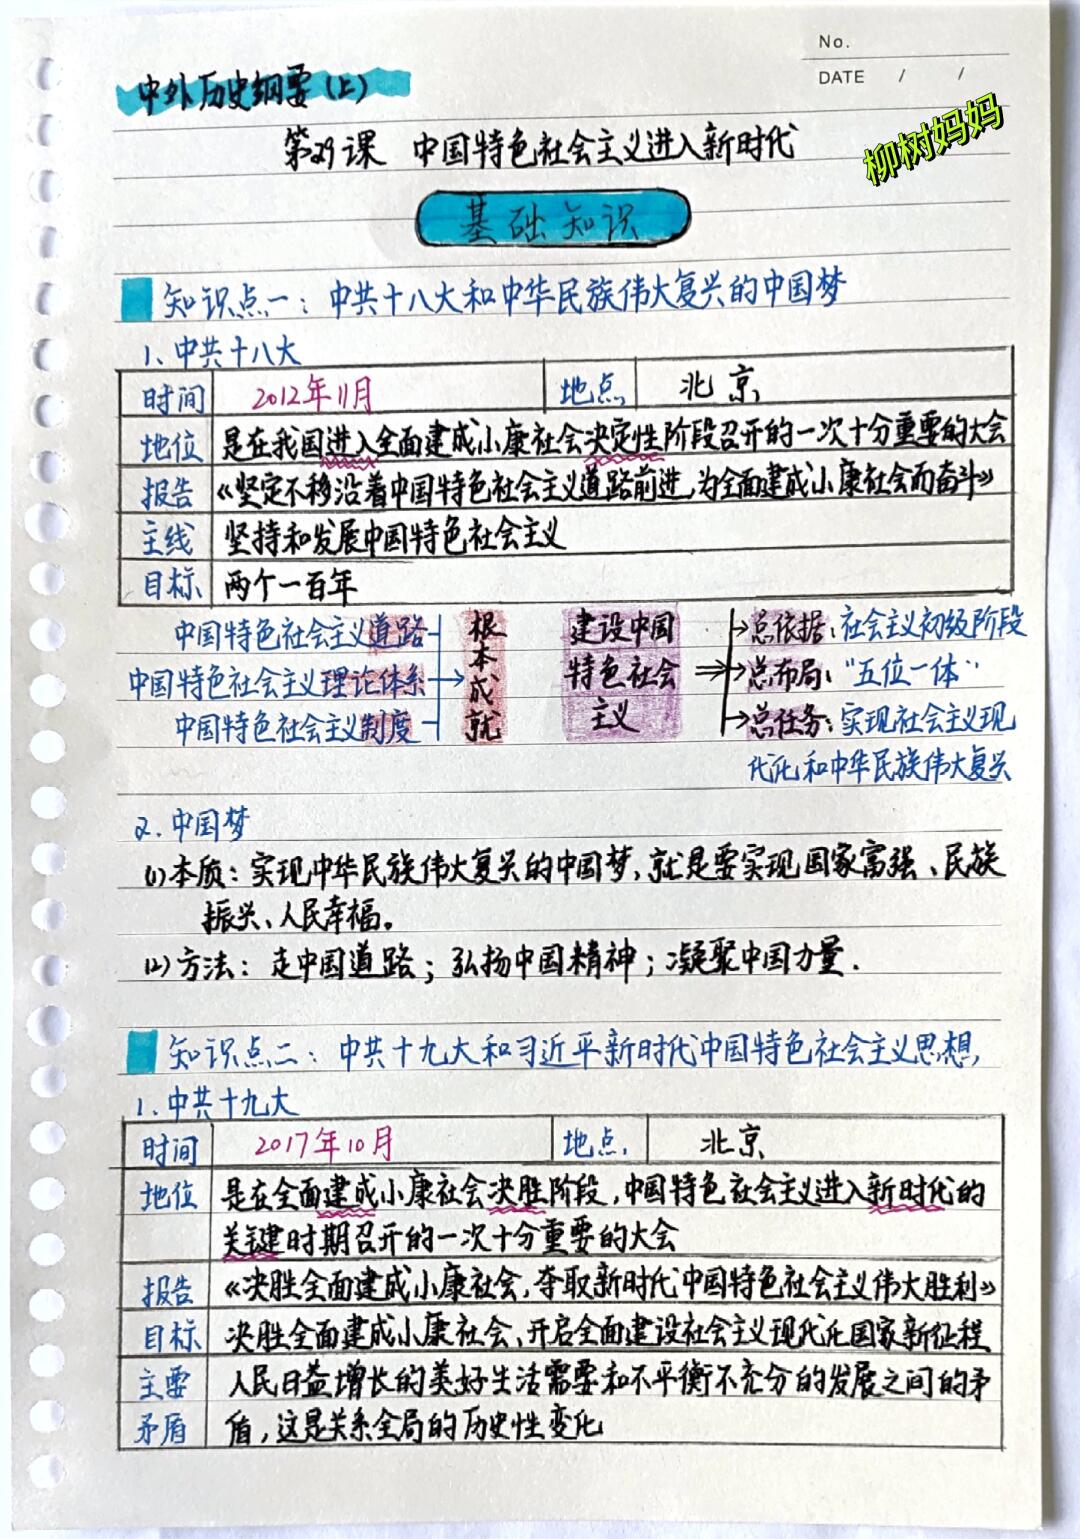 No.
DATE / /
中外历史纲要(上)
柳树妈妈
第29课 中国特色社会主义进入新时代
基础知识
知识点一:中共十八大和中华民族伟大复兴的中国梦
1、中共十八大
时间 2012年11月 地点 北京
地位 是在我国进入全面建成小康社会决定性阶段召开的一次十分重要的大会
报告 《坚定不移沿着中国特色社会主义道路前进,为全面建成小康社会而奋斗》
主线 坚持和发展中国特色社会主义
目标 两个一百年
中国特色社会主义道路
中国特色社会主义理论体系
中国特色社会主义制度
根本成就
建设中国
特色社会
主义
总依据:社会主义初级阶段
总布局:“五位一体”
总任务:实现社会主义现
代化和中华民族伟大复兴
2.中国梦
(1)本质:实现中华民族伟大复兴的中国梦,就是要实现国家富强、民族
振兴、人民幸福。
(2)方法:走中国道路;弘扬中国精神;凝聚中国力量.
知识点二:中共十九大和习近平新时代中国特色社会主义思想
1.中共十九大
时间 2017年10月 地点 北京
地位 是在全面建成小康社会决胜阶段,中国特色社会主义进入新时代的
关键时期召开的一次十分重要的大会
报告 《决胜全面建成小康社会,夺取新时代中国特色社会主义伟大胜利》
目标 决胜全面建成小康社会,开启全面建设社会主义现代化国家新征程
主要 人民日益增长的美好生活需要和不平衡不充分的发展之间的矛
矛盾 盾,这是关系全局的历史性变化